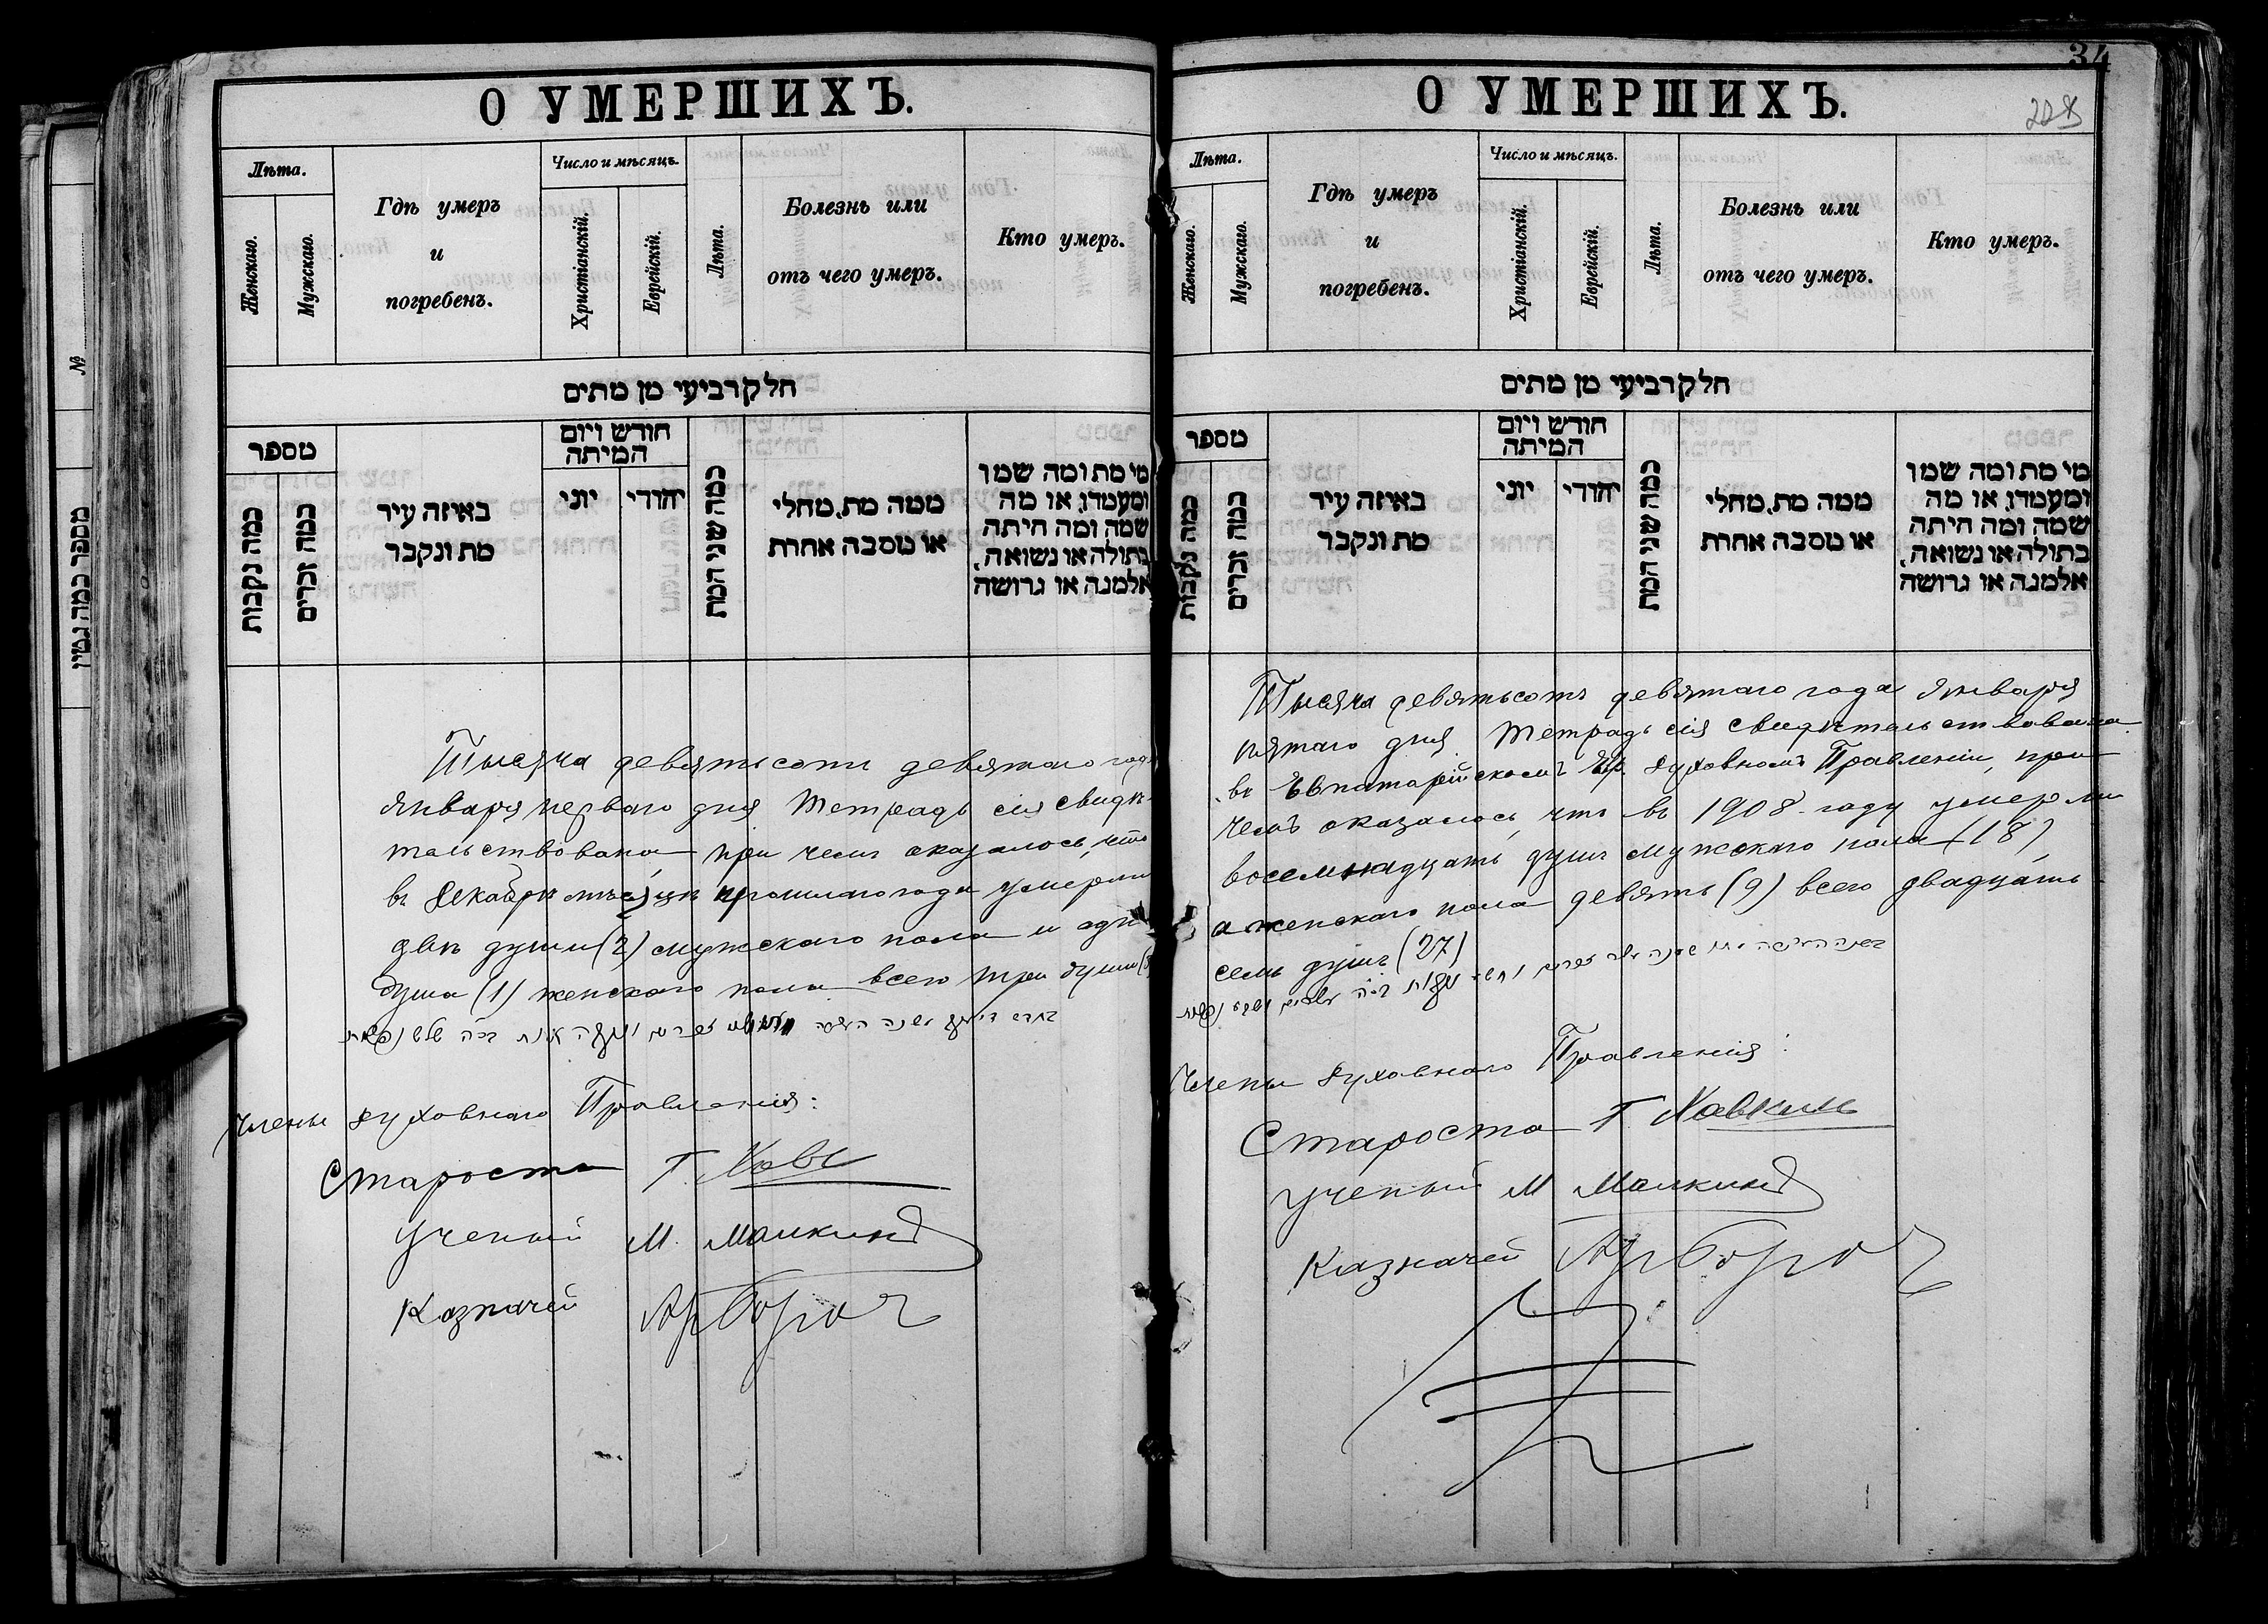 О УМЕРШИХЪ.
Лѣта.
Женскаго.
Мужскаго.
Гдѣ умеръ
и
погребенъ.
Число и мѣсяцъ.
Христіанскій.
Еврейскій.
Лѣта.
Болезнь или
отъ чего умеръ.
Кто умеръ.
חלק רביעי מן מתים
מספר
כמה נקבות
כמה זכרים
באיזה עיר
מת ונקבר
חודש ויום
המיתה
יוני
יהודי
כמה שני המת
ממה מת, מחלי
או מסבה אחרת
מי מת ומה שמו
ומעמדו, או מה
שמה ומה היתה
בתולה או נשואה,
אלמנה או גרושה
Тысяча девятьсотъ девятаго года
Января перваго дня Тетрадь сія свидѣ-
тельствована, при чемъ оказалось, что
въ Декабрѣ мѣсяцѣ прошлаго года умерли
двѣ души (2) мужскаго пола и одна
душа (1) женскаго пола всего три души
Члены Духовнаго Правленія:
Староста Г. Хавк
Ученый М. Малкинъ
Казначей
О УМЕРШИХЪ.
34
Лѣта.
Женскаго.
Мужскаго.
Гдѣ умеръ
и
погребенъ.
Число и мѣсяцъ.
Христіанскій.
Еврейскій.
Лѣта.
Болезнь или
отъ чего умеръ.
Кто умеръ.
חלק רביעי מן מתים
מספר
כמה נקבות
כמה זכרים
באיזה עיר
מת ונקבר
חודש ויום
המיתה
יוני
יהודי
כמה שני המת
ממה מת, מחלי
או מסבה אחרת
מי מת ומה שמו
ומעמדו, או מה
שמה ומה היתה
בתולה או נשואה,
אלמנה או גרושה
Тысяча девятьсотъ девятаго года Января
пятаго дня Тетрадь сія свидѣтельствована
въ Евпаторійскомъ Духовномъ Правленіи, при
чемъ оказалось, что въ 1908 году умерли
восемнадцать душъ мужскаго пола (18)
а женскаго пола девять (9) всего двадцать
семь душъ (27)
Члены Духовнаго Правленія:
Староста Г. Хавкинъ
Ученый М Малкинъ
Казначей
№
מספר כמה גטין